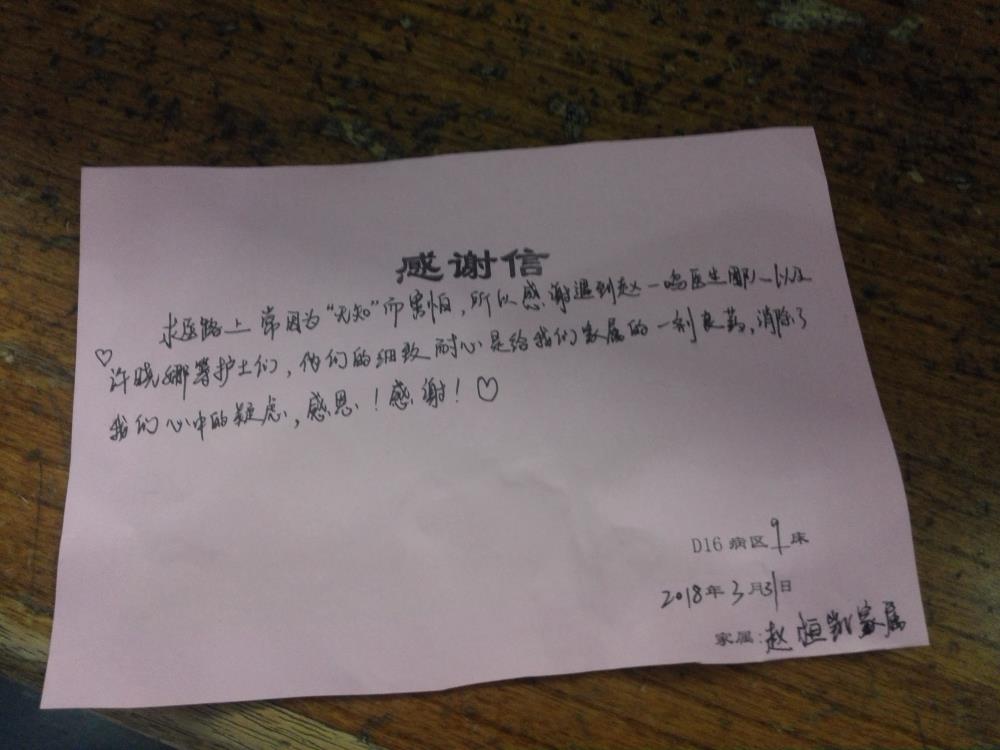 感谢信
求医路上常因为“无知”而害怕,所以感谢遇到赵一鸣医生团队以及
♡许晓娜等护士们,他们的细致耐心是给我们家属的一剂良药,消除了
我们心中的疑虑,感恩!感谢!♡
D16 病区9床
2018年3月31日
家属:赵恒凯家属